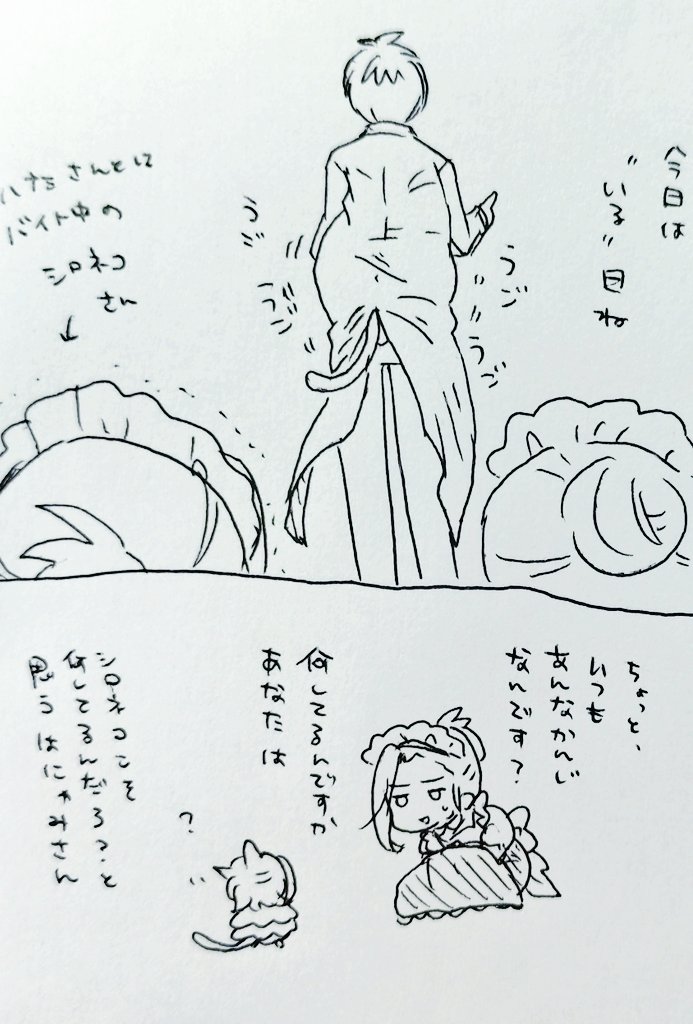 今日は
"いる"日ね
うじ
うじ
うじ
うじ
ハナミさんとこに
バイト中の
シロネコ
さん
↓
ちょっと、
いつも
あんなかんじ
なんです?
何してるんですか
あなたは
シロネコこそ
何してるんだろ?と
思うはにゃみさん
?